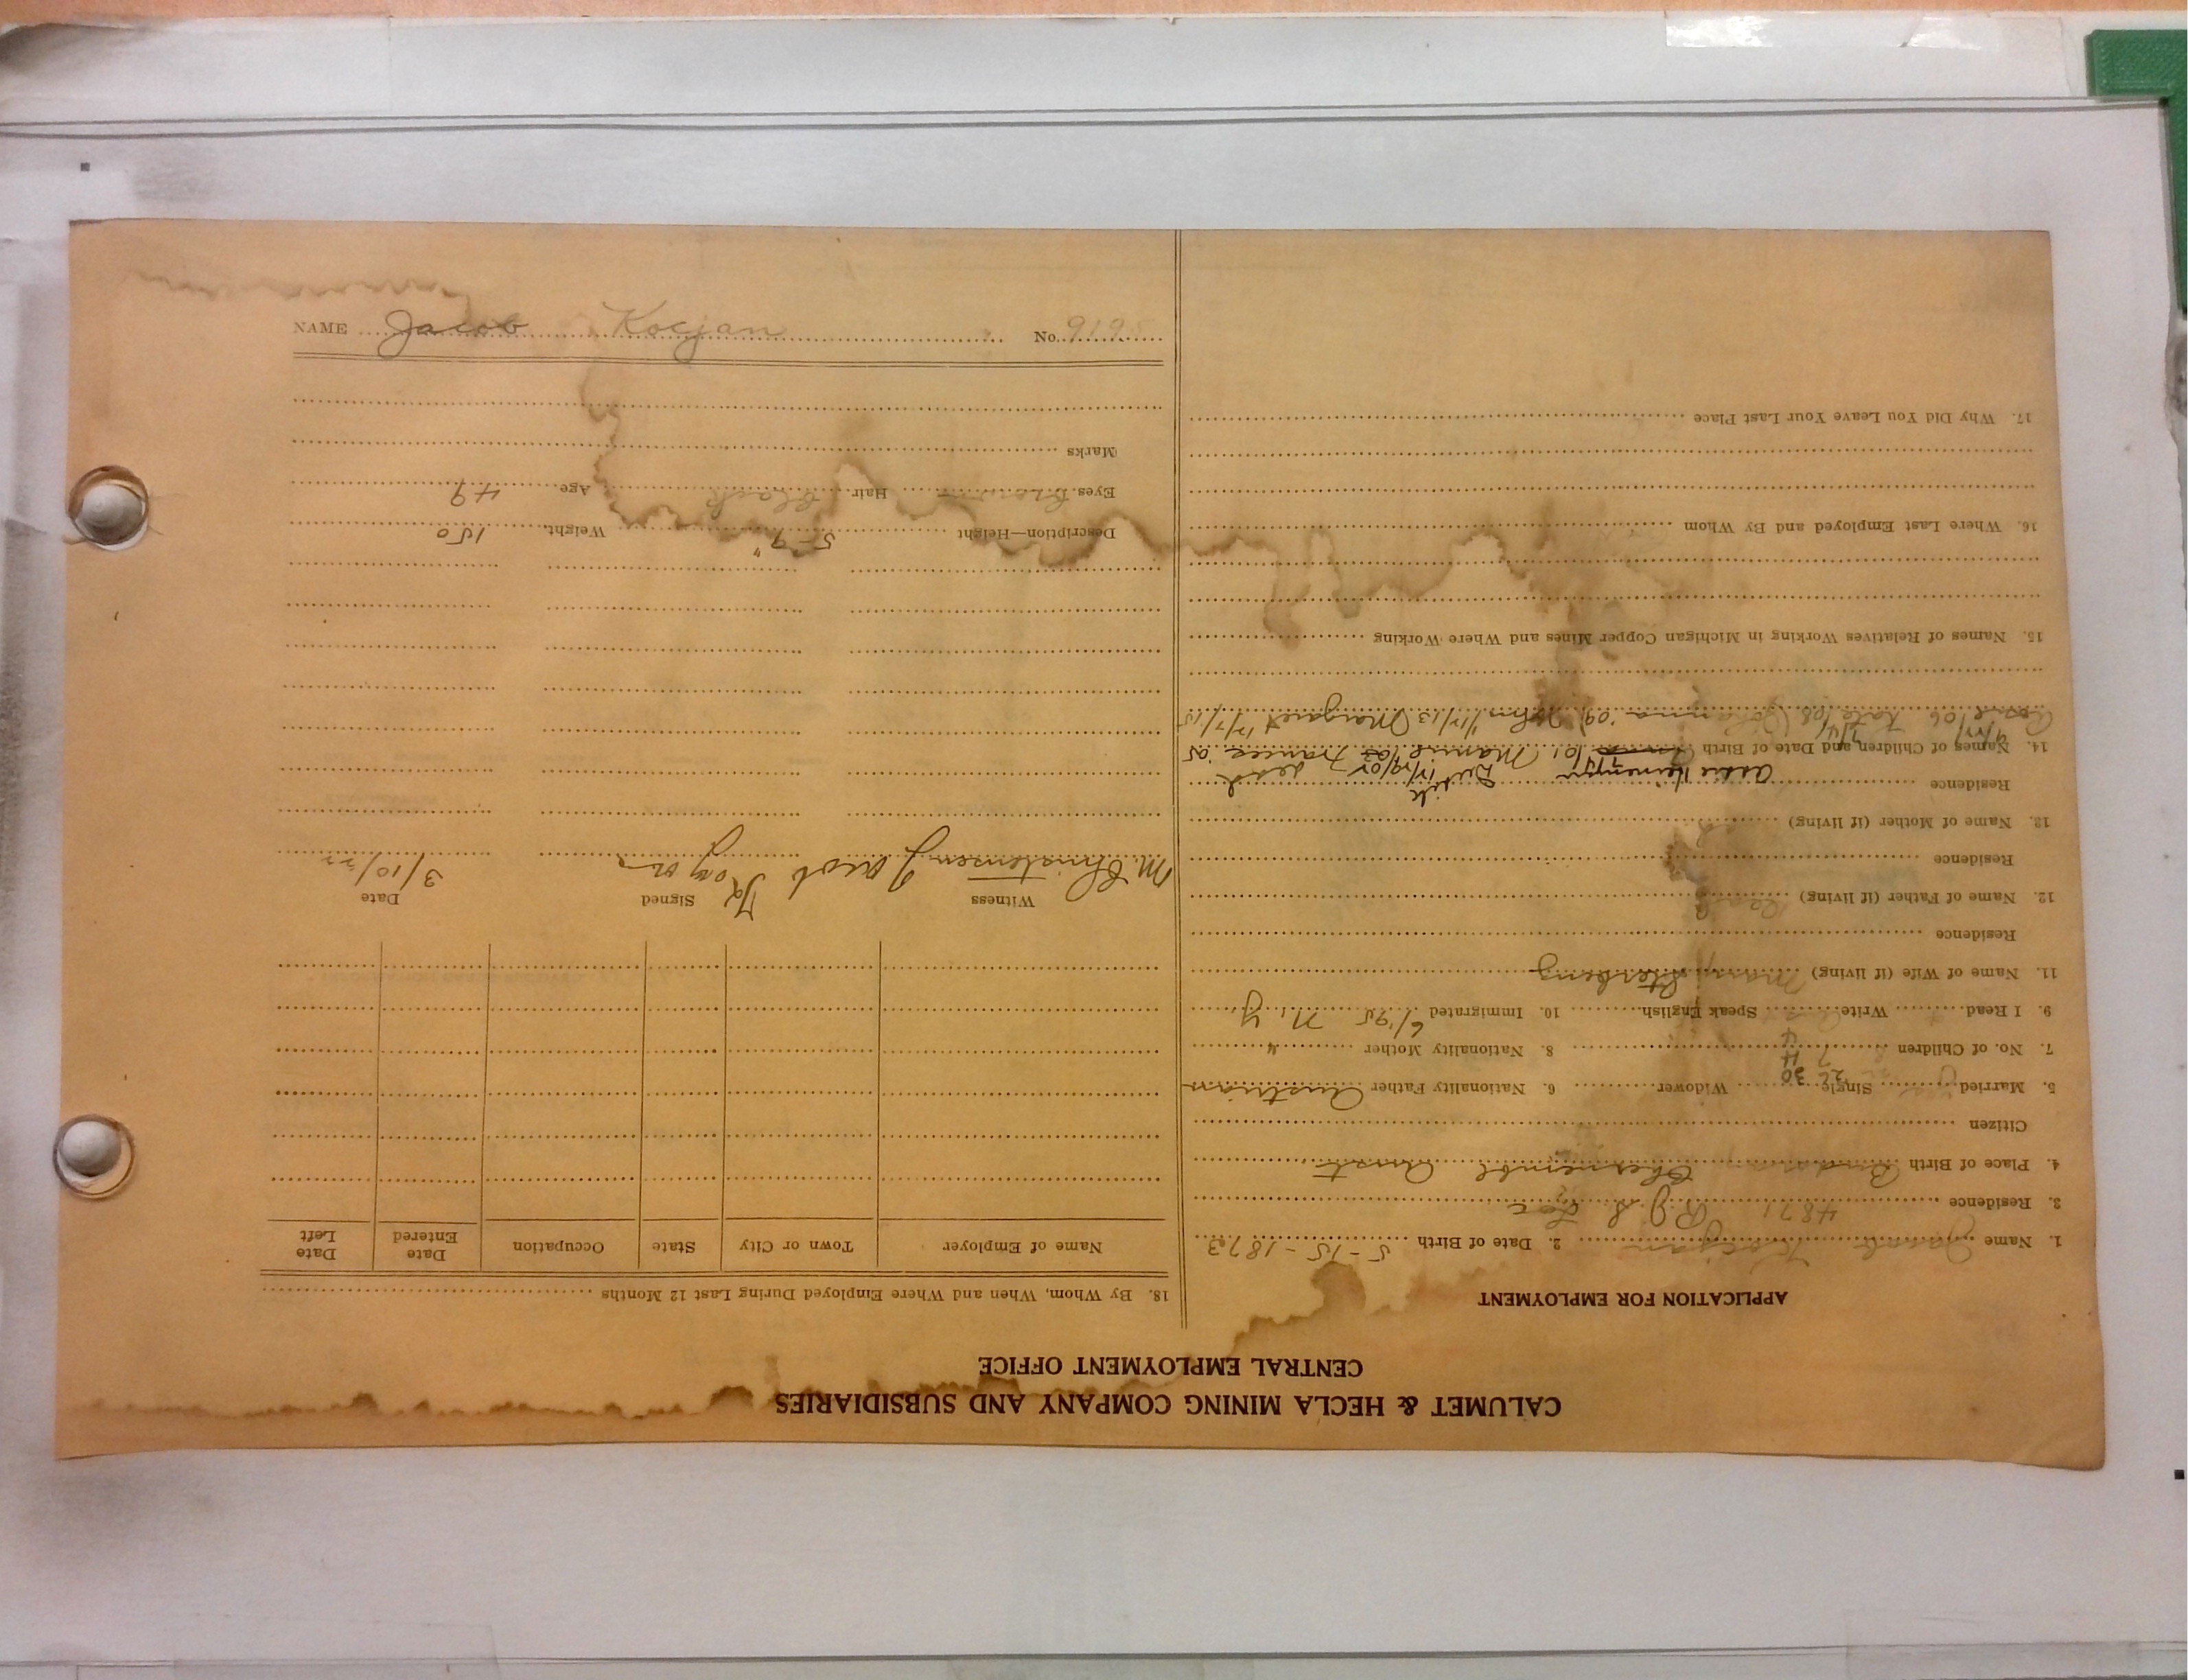 CALUMET & HECLA MINING COMPANY AND SUBSIDIARIES
CENTRAL EMPLOYMENT OFFICE
APPLICATION FOR EMPLOYMENT
1. Name Jacob Kocjan 2. Date of Birth 5-15-1873
3. Residence 4871 B. J. S. Loc
4. Place of Birth Chernembl Aust
Citizen
5. Married Single Widower 6. Nationality Father Austrian
26 30
7. No. of Children 7 H 4 8. Nationality Mother "
9. I Read Write Speak English 10. Immigrated 6/95 N. Y.
11. Name of Wife (if living) Mary
Residence
12. Name of Father (if living)
Residence
13. Name of Mother (if living)
Residence dead
14. Names of Children and Date of Birth /01 Mamie /03 Frances '05
Rosie /06 Kate /08 Johanna '09 John 1/17/13 Margaret 12/7/15
15. Names of Relatives Working in Michigan Copper Mines and Where Working
16. Where Last Employed and By Whom
17. Why Did You Leave Your Last Place
18. By Whom, When and Where Employed During Last 12 Months
Name of Employer Town or City State Occupation Date Entered Date Left
Witness Signed Date
M. Christensen Jacob 3/10/22
Description—Height 5-9" Weight 150
Eyes Brown Hair Black Age 49
Marks
NAME Jacob Kocjan No. 9195